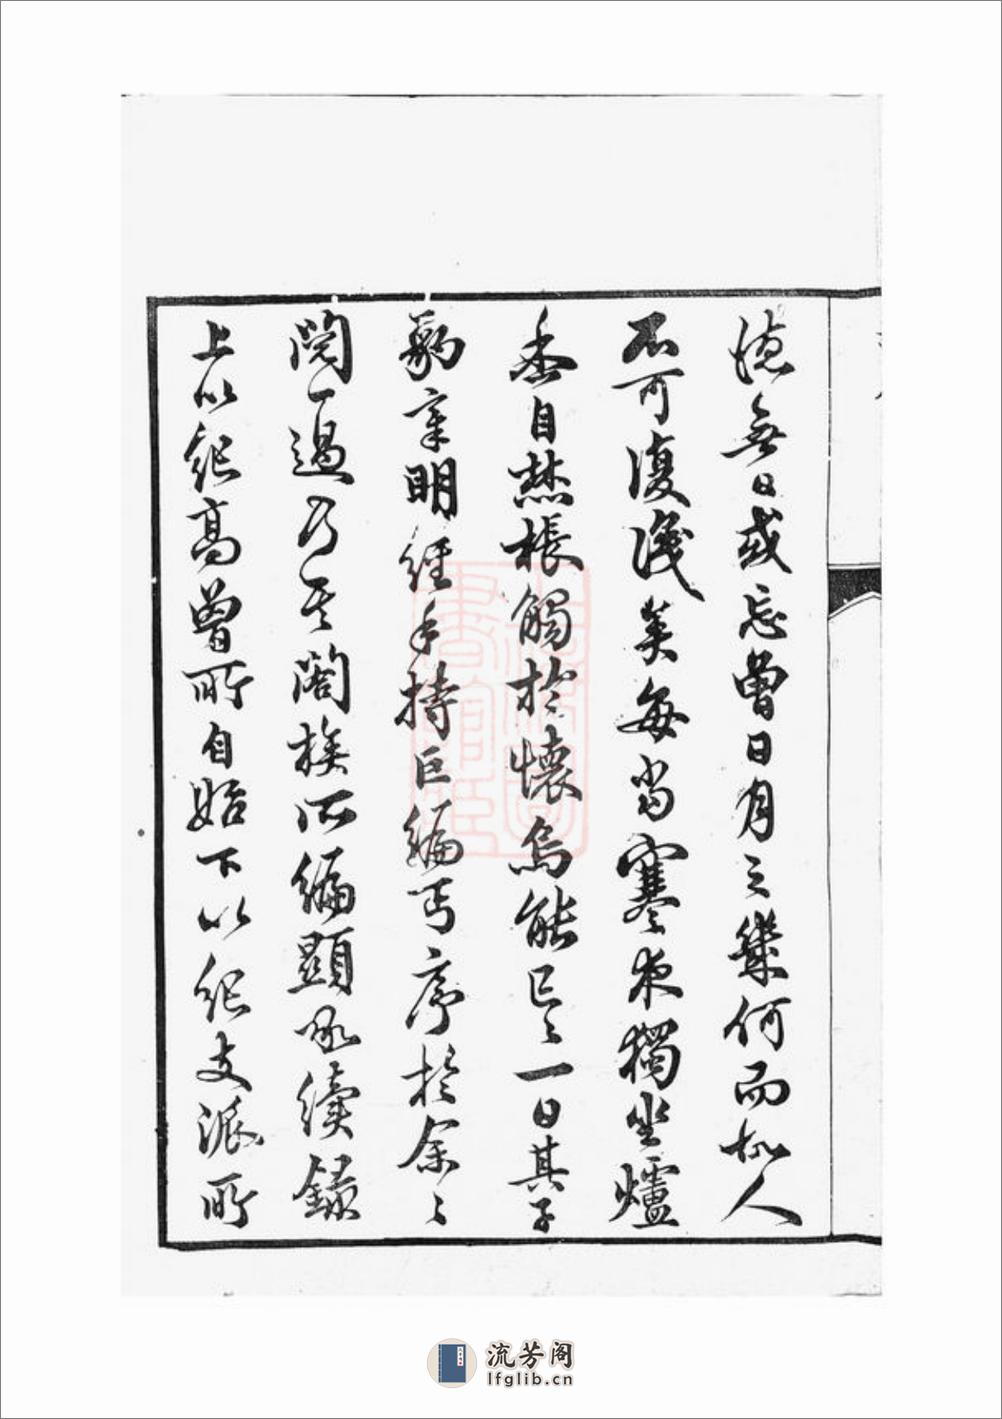 德無日或忘曾日月之幾何而故人
不可復識矣每當寒夜獨坐爐
香自爇棖觸於懷烏能已已一日其子
毅章明經手持巨編丐序於余余
閱一過乃其闔族所編顯承續錄
上以紀高曾所自始下以紀支派所
流芳阁
lfglib.cn